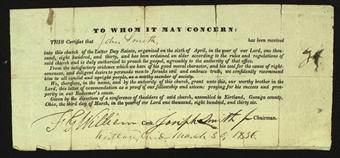 TO WHOM IT MAY CONCERN:
THIS Certifies that John Smith has been received
into this church of the Latter Day Saints, organized on the sixth of April, in the year of our Lord, one thou-
sand, eight hundred, and thirty, and has been ordained an elder according to the rules and regulations of
said church and is duly authorized to preach the gospel, agreeably to the authority of that office.
From the satisfactory evidence which we have of his good moral character, and his zeal for the cause of right-
eousness, and diligent desire to persuade men to forsake evil and embrace truth, we confidently recommend
him to all candid and upright people, as a worthy member of society.
We, therefore, in the name, and by the authority of this church, grant unto this, our worthy brother in the
Lord, this letter of commendation as a proof of our fellowship and esteem: praying for his success and pros-
perity in our Redeemer's cause.
Given by the direction of a conference of the elders of said church, assembled in Kirtland, Geauga county,
Ohio, the third day of March, in the year of our Lord one thousand, eight hundred, and thirty six.
F G Williams Clerk. Joseph Smith Jr Chairman.
Kirtland, March 1836.